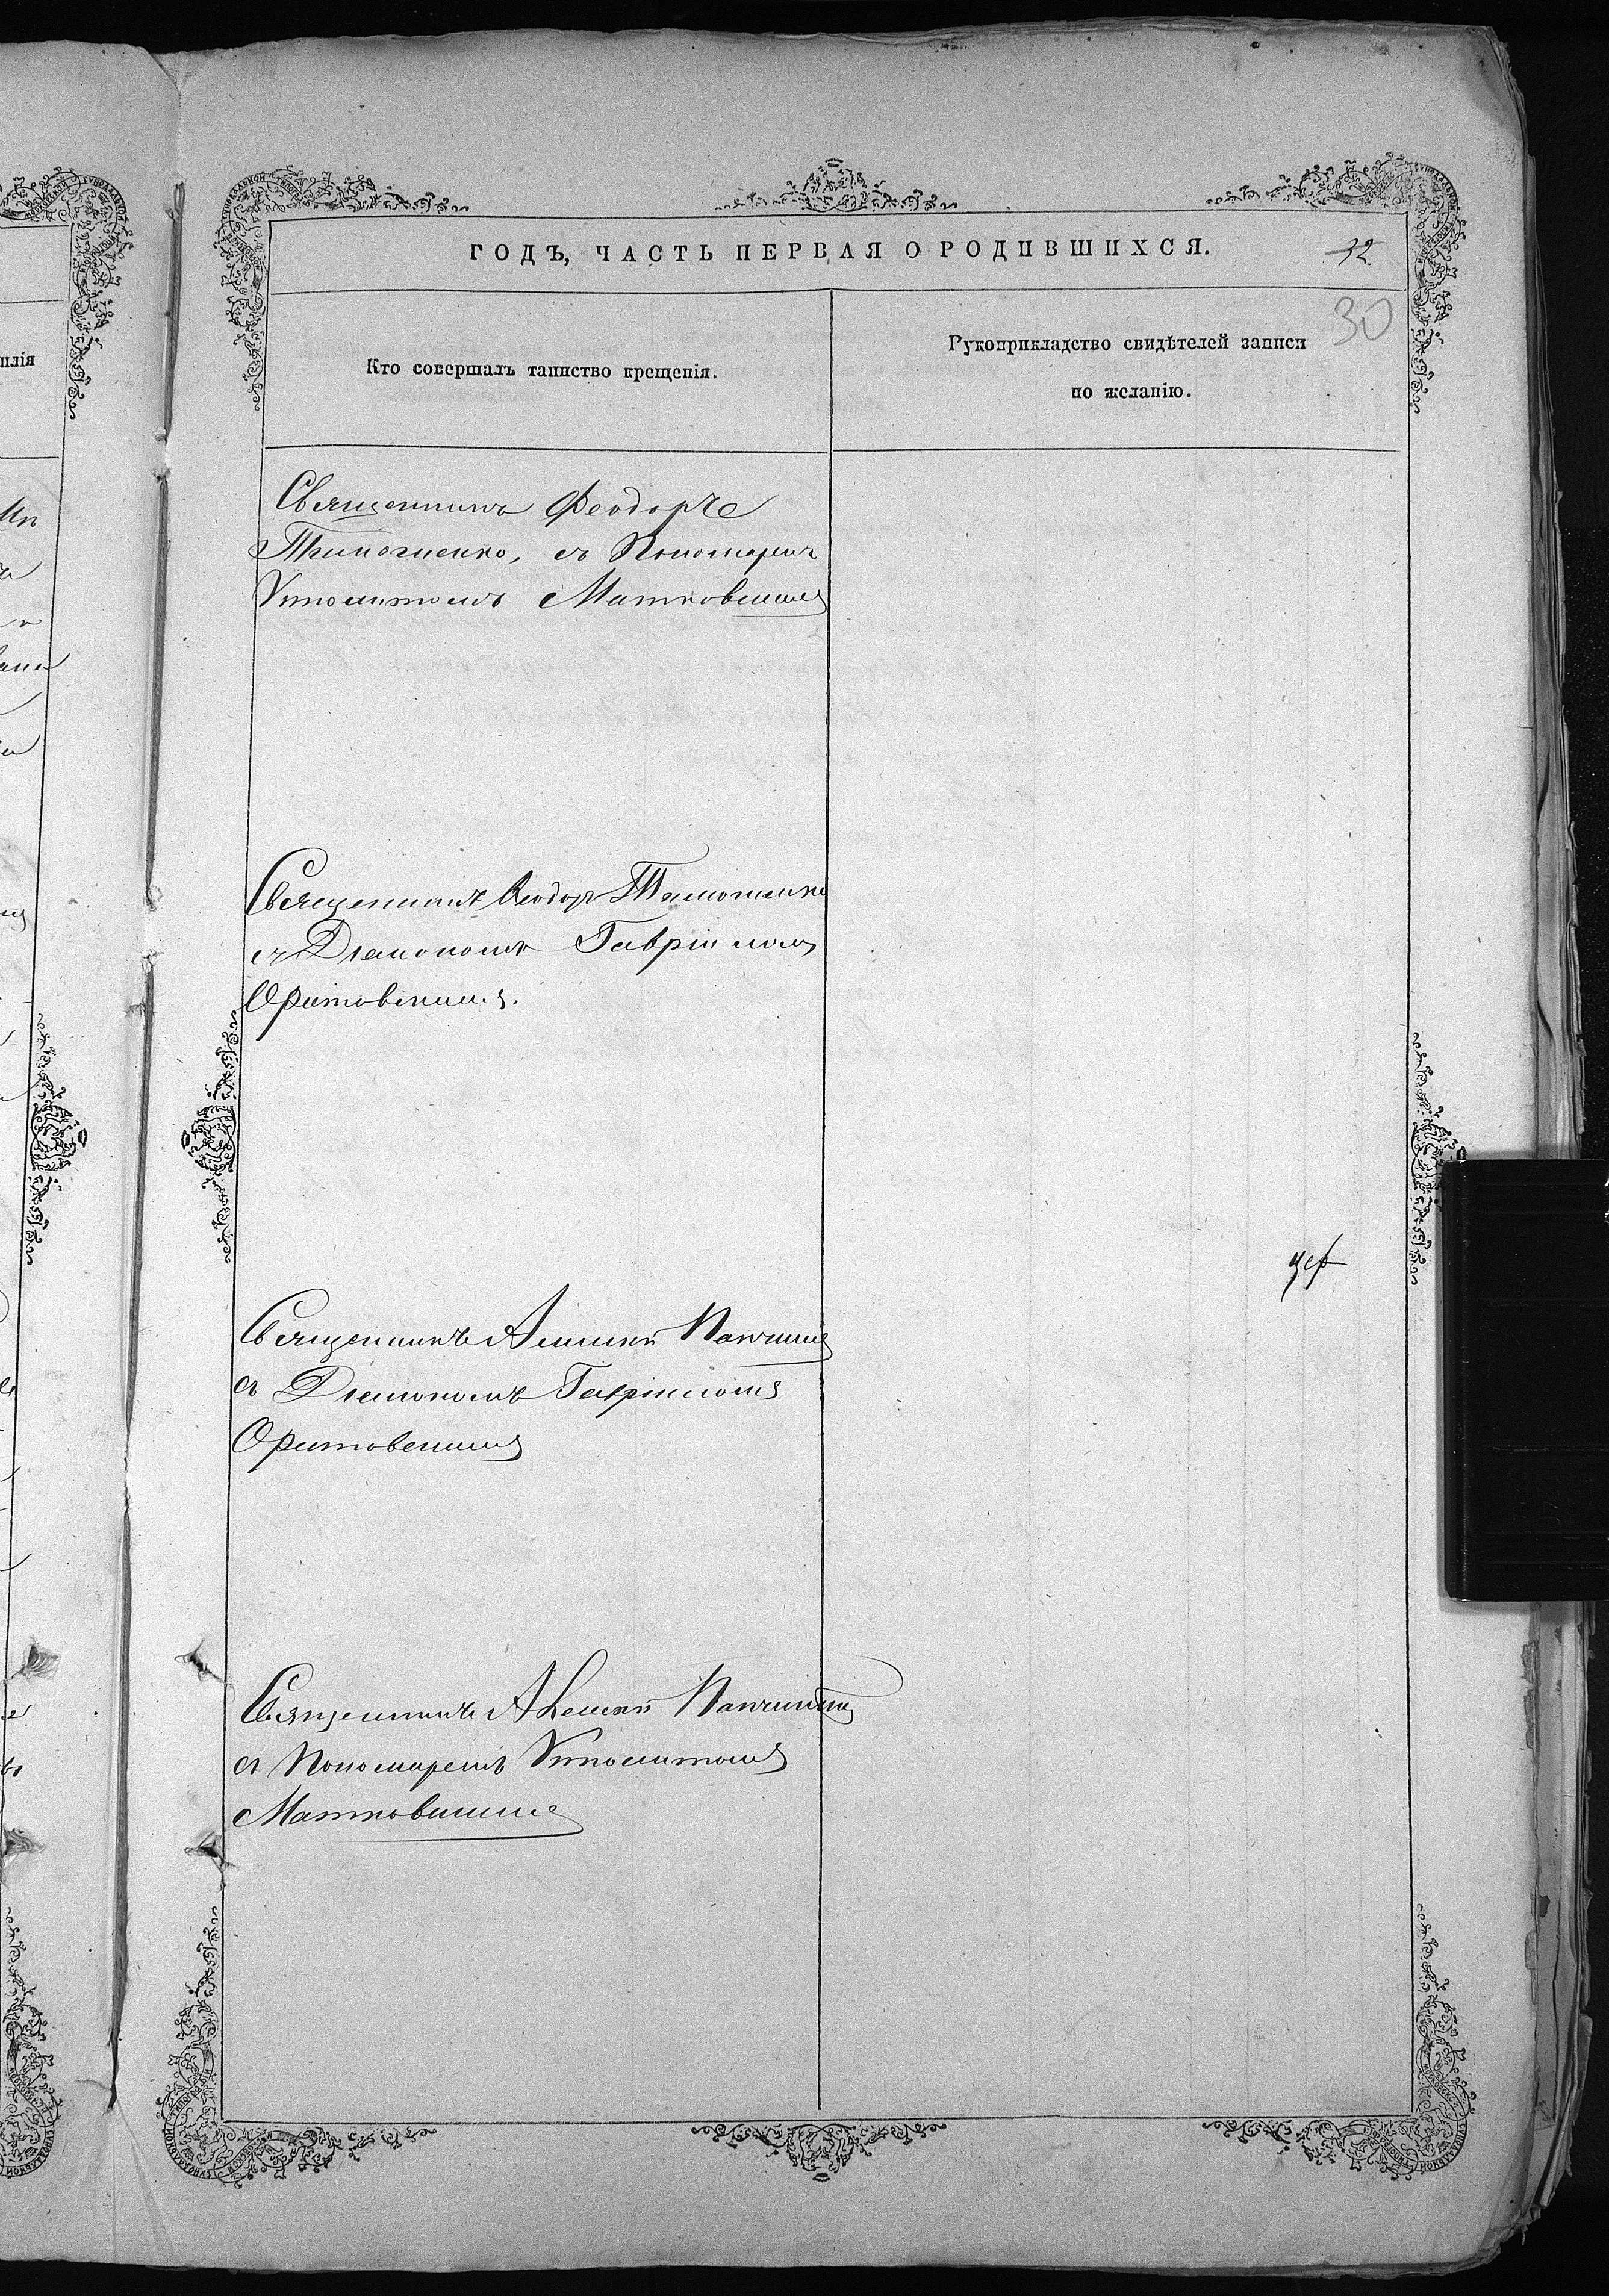 ГОДЪ, ЧАСТЬ ПЕРВАЯ О РОДИВШИХСЯ.
12
30
Кто совершалъ таинство крещенія.
Рукоприкладство свидѣтелей записи
по желанію.
Священникъ Феодоръ
Тимошенко, съ Пономаремъ
Упполитомъ Матковскимъ
Священникъ Ѳеодоръ Тимошенко
съ Діакономъ Гавріиломъ
Оратовскимъ.
Священникъ Алексій Панчинъ
съ Діакономъ Гавріиломъ
Оратовскимъ
Священникъ Алексій
съ Пономаремъ Упполитомъ
Матковскимъ